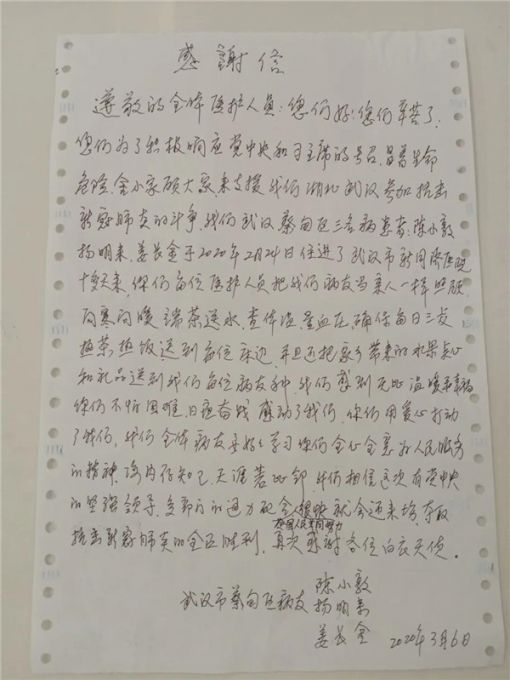 感謝信
尊敬的全体医护人员:您们好!您们辛苦了,
您们为了积极响应党中央和习主席的号召,冒着生命
危险,舍小家顾大家,来支援我们湖北武汉参加抗击
新冠肺炎的斗争,我们武汉蔡甸区三名病患者:陈小敦
扬明来、姜长金于2020年2月24日住进了武汉市新同济医院
十多天来,你们每位医护人员把我们病友当亲人一样照顾,
问寒问暖 端茶送水,查体温量血压,确保每日三次
热菜热饭送到每位床边,并且还把家乡带来的水果点心
和礼品送到我们每位病友手中,我们感到无比温暖和幸福
你们不怕困难,日夜奋战感动了我们,你们用爱心打动
了我们,我们全体病友要好好学习你们全心全意为人民服务
的精神,海内存知己,天涯若比邻,我们相信这次有党中央
的坚强领导,各部门的通力配合,很快就会迎来场夺取
全国人民共同努力
抗击新冠肺炎的全面胜利,再次感谢各位白衣天使。
武汉市蔡甸区病友 陈小敦
扬明来
姜长金 2020年3月6日